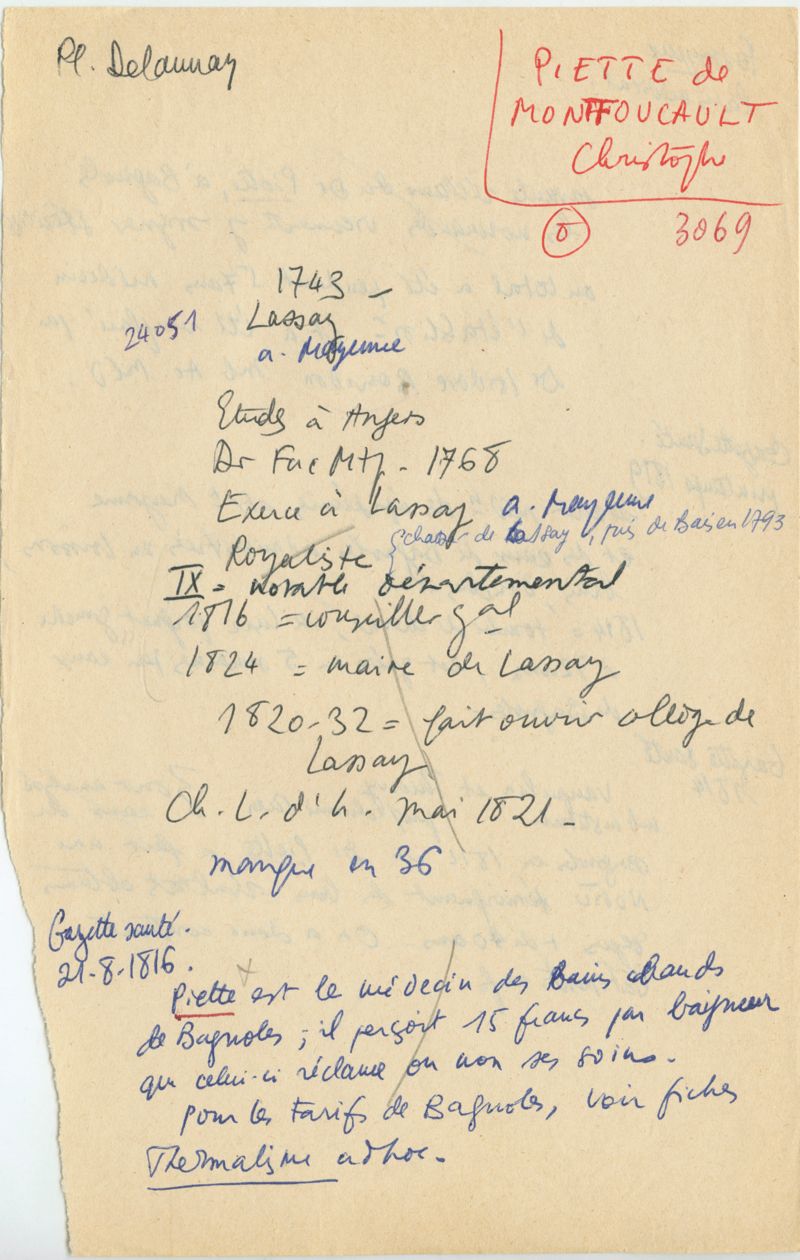 Pl. Delaunay
PIETTE de
MONTFOUCAULT
Christophe
3069
1743 -
24051
Lassay
a. Mayenne
Etudes à Angers
Dr Fac Mtp - 1768
Exerce à Lassay a. Mayenne
Royaliste { de Lassay, puis de Bais en 1793
IX = notable départemental
1816 = conseiller gal
1824 = maire de Lassay
1820-32 = fait ouvrir collège de
Lassay
Ch. L. d'h. mai 1821 -
manque en 36
Gazette santé.
21-8-1816.
Piette est le médecin des Bains chauds
de Bagnoles ; il perçoit 15 francs par baigneur
que celui-ci réclame ou non ses soins.
Pour les Tarifs de Bagnoles, voir fiches
Thermalisme adhoc.